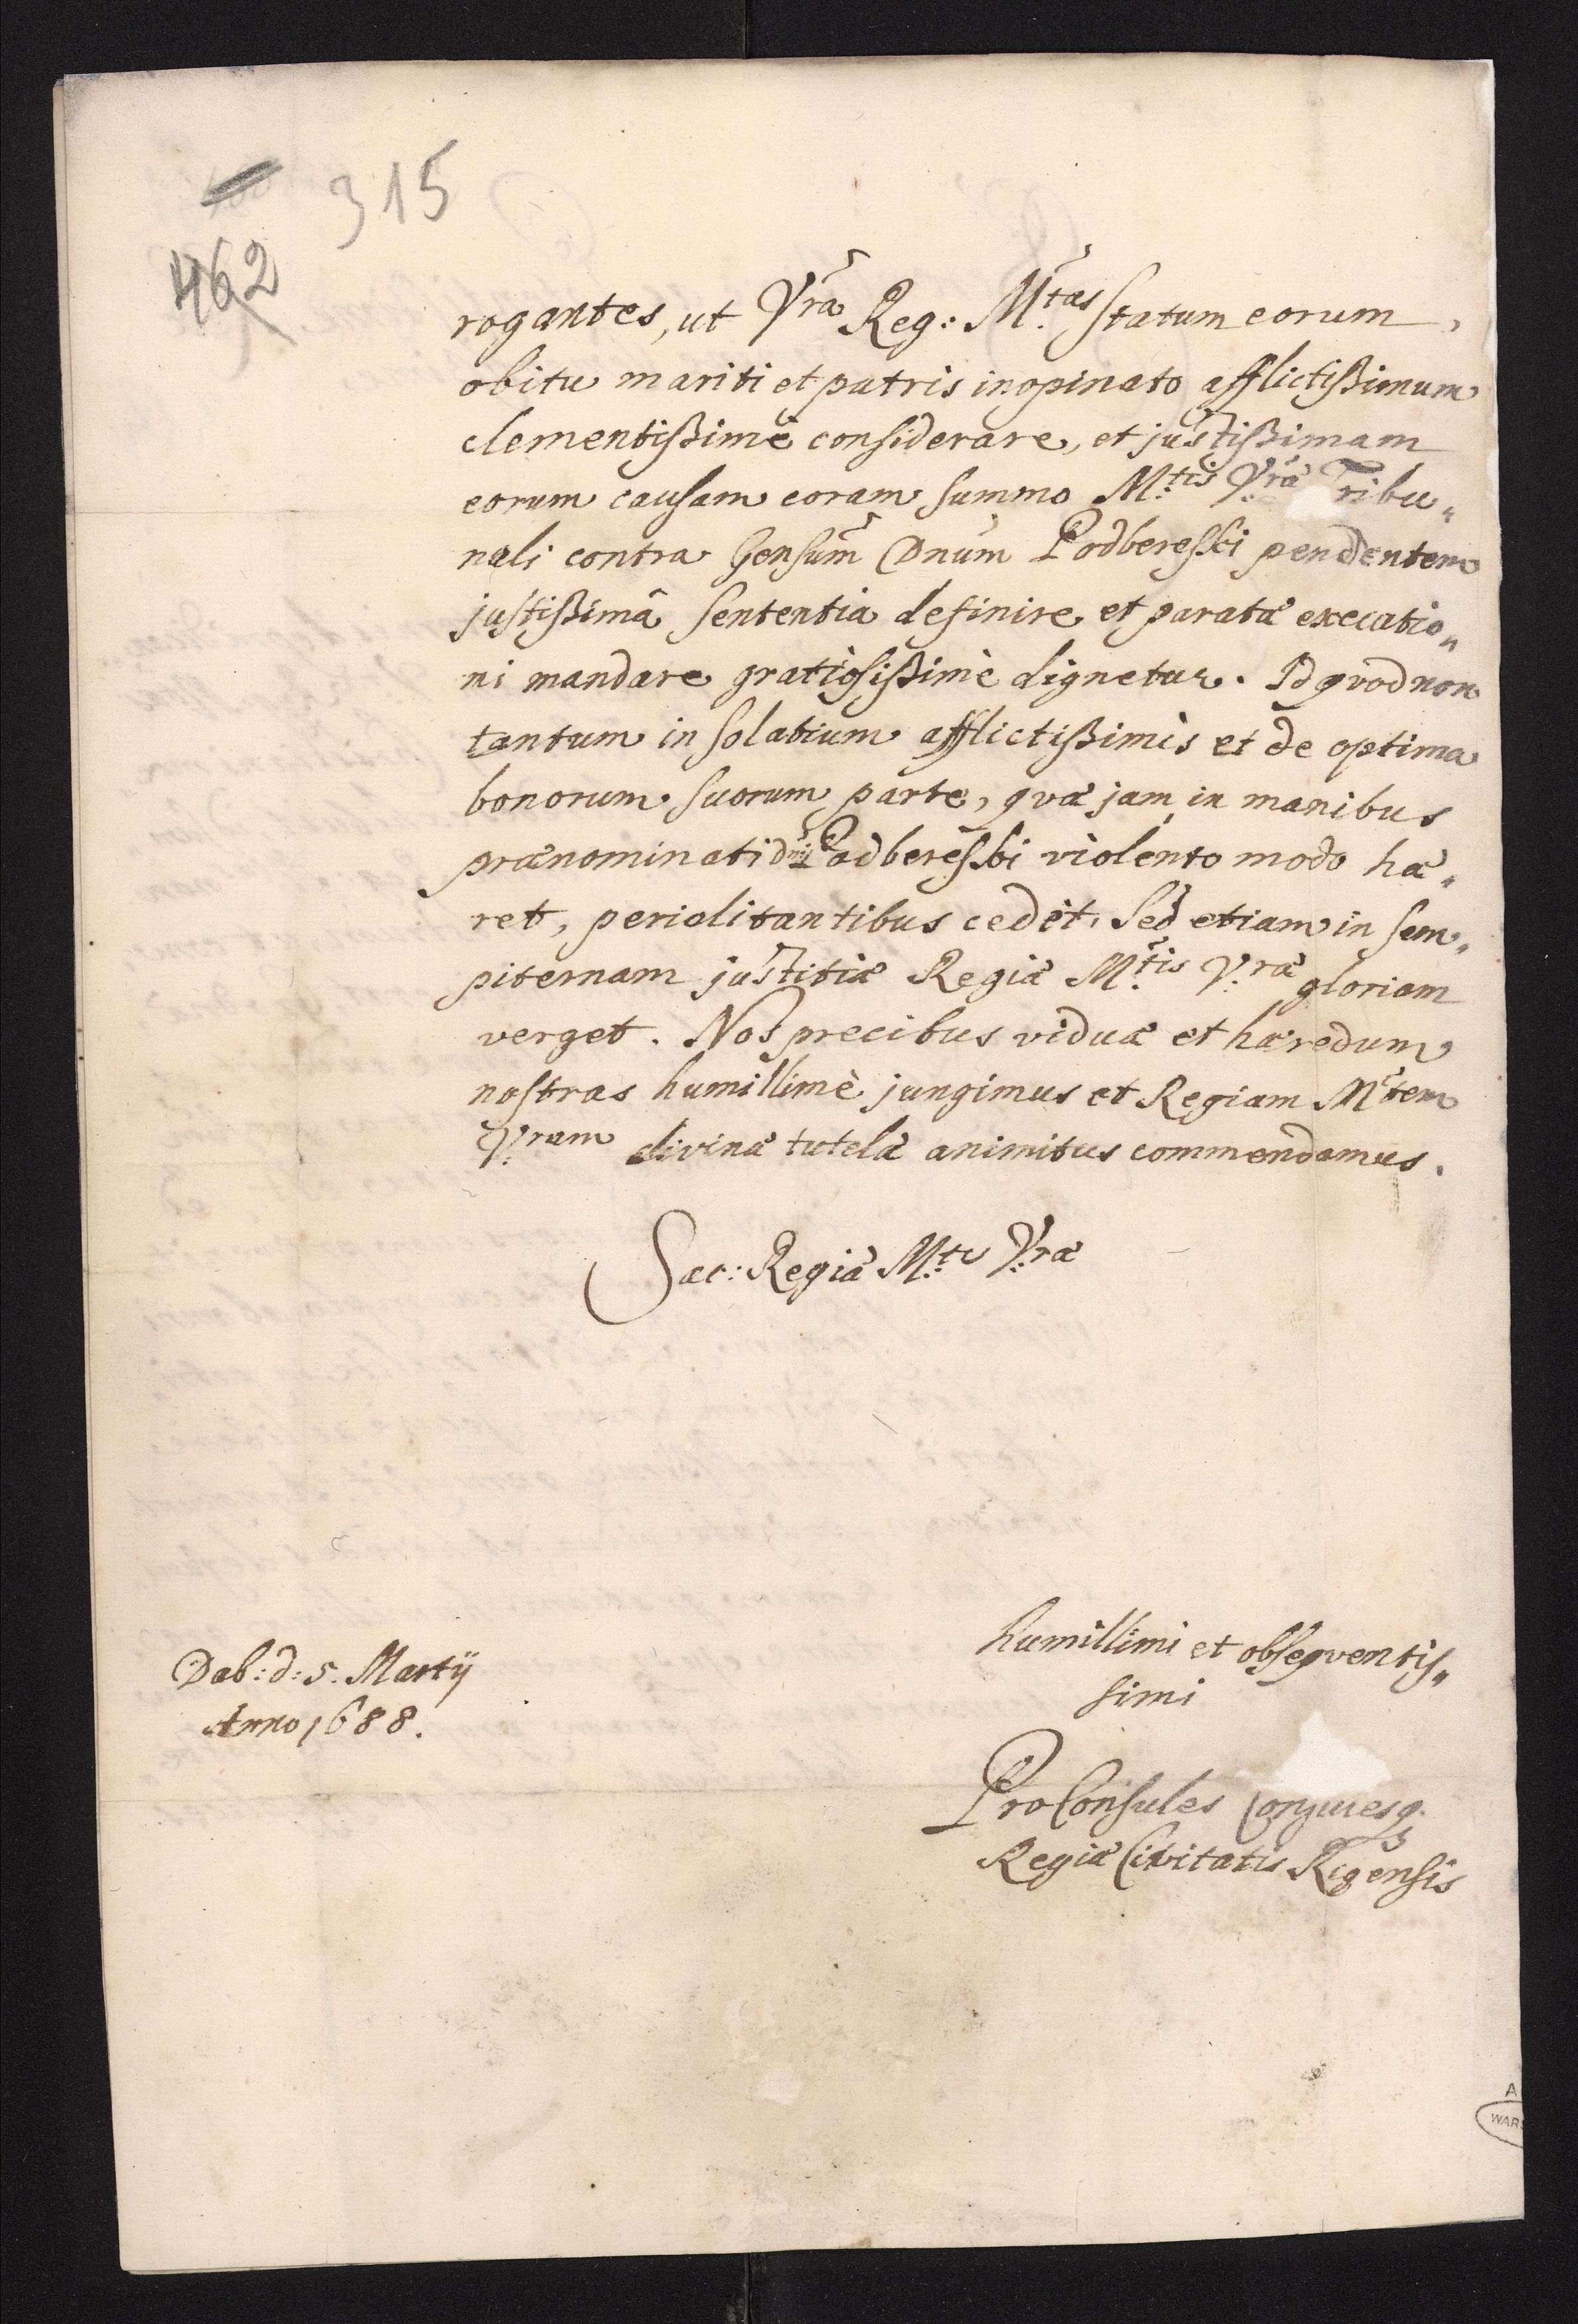 315
462
rogantes, ut Vrã Reg: M.tas statum eorum,
obitu mariti et patris inopinato afflictißimum
clementißimè considerare, et justißimam
eorum causam coram summo M.tis V.ræ Tribu„
nali contra Gensum̃ Dnum̃ Podbereski pendentem
justißimâ sententia definire et paratæ executio„
ni mandare gratiosißimè dignetur. Id qvod non
tantum in solatium afflictißimis et de optima
bonorum suorum parte, qvæ jam in manibus
prænominati dni Podbereski violento modo hæ„
ret, periclitantibus cedet, sed etiam in sem„
piternam justitiæ Regiæ M.tis V.ræ gloriam
verget. Nos precibus viduæ et hæredum
nostras humillimè jungimus et Regiam M.tem
V.ram divinæ tutelæ animitus commendamus.
Sac: Regiæ M.tis V.ræ
humillimi et obseqventis„
simi
Dab: d: 5. Martij
Anno 1688.
ProConsules Conₛulesq₃
Regiæ Civitatis Rigensis